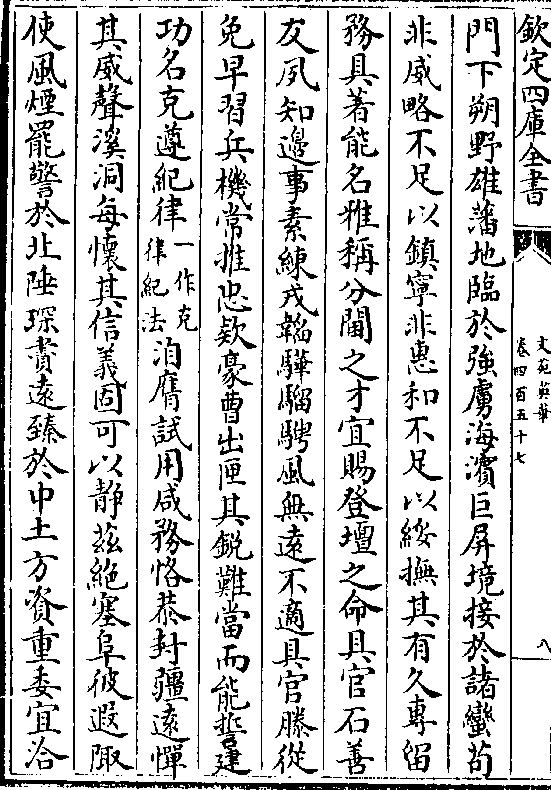 欽定四庫全書
文苑英華
卷四百五十七
八
門下朔野雄藩地臨於強虜海濱巨屏境接於諸蠻苟
非威略不足以鎮寧非惠和不足以綏撫其有久專留
務具著能名雅稱分閫之才宜賜登壇之命具官石善
友夙知邊事素練戎韜驊騮騁風無遠不適具官滕從
免早習兵機常推忠欵豪曹出匣其鋭難當而能誓建
功名克遵紀律一作克律紀法洎膺試用咸務恪恭封疆遠憚
其威聲溪洞每懷其信義固可以静茲絶塞阜彼遐陬
使風煙罷警於北陲琛賮遠臻於中土方資重委宜洽